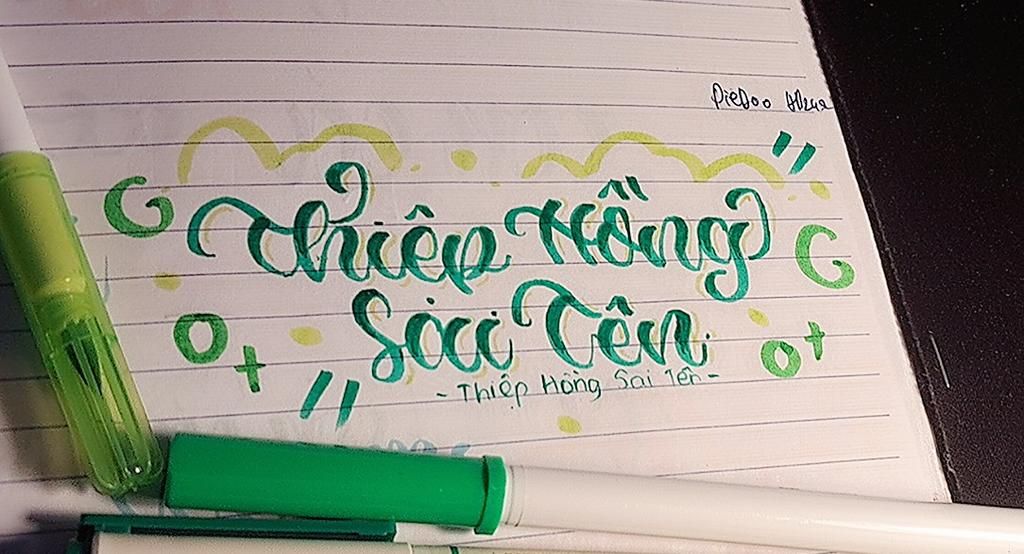 Thiệp Hồng
Sai Tên
- Thiệp Hồng Sai Tên -